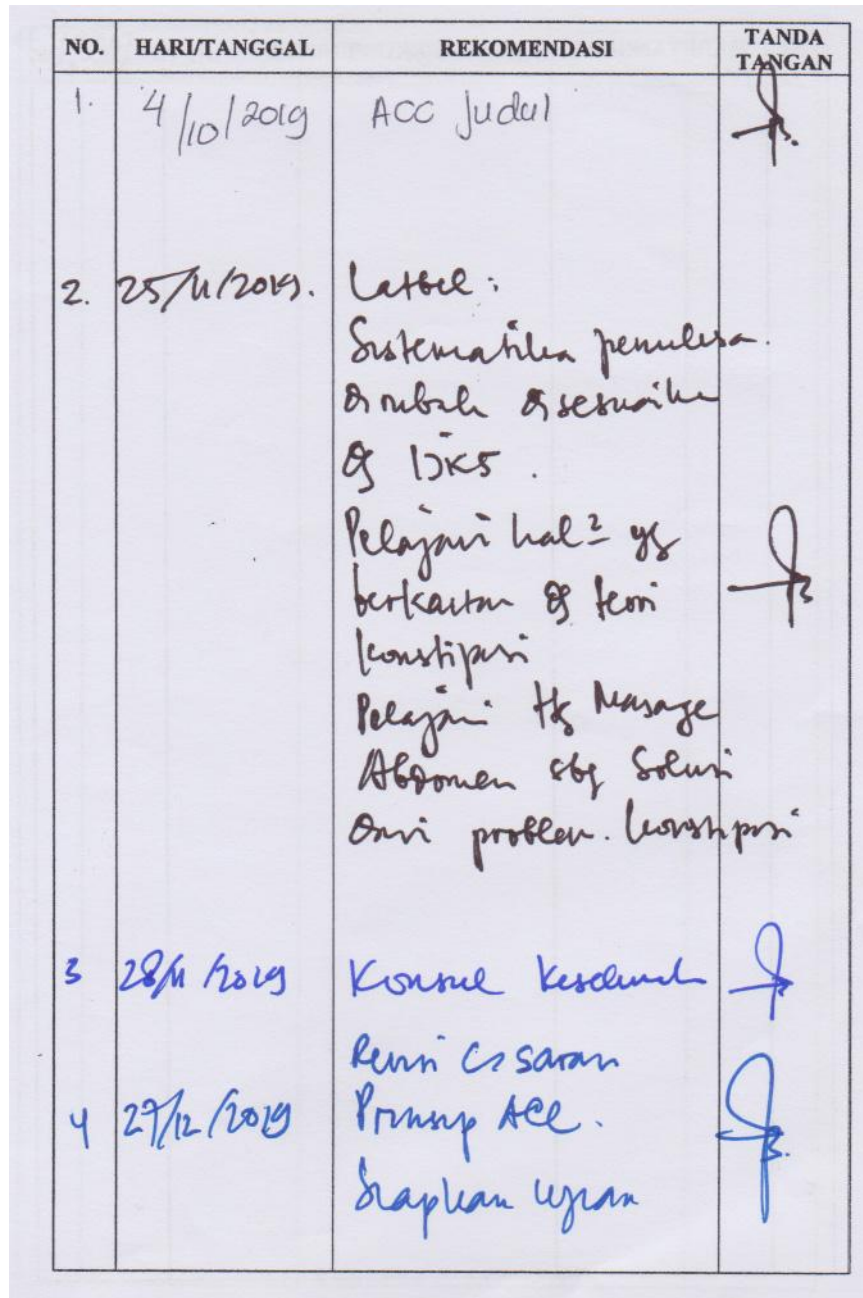 NO. HARI/TANGGAL REKOMENDASI TANDA TANGAN
1. 4/10/2019 ACC Judul
2. 25/11/2019. Latbel :
Sistematika penulisa
dirubah disesuaika
dg
Pelajari hal² yg
berkaitan dg teori
konstipasi
Pelajari ttg Masage
Abdomen sbg Solusi
dari problem. konstipasi
3 28/11/2019 Konsul Keseluruh
Revisi saran
4 27/12/2019 Prinsip ACC.
Siapkan ujian